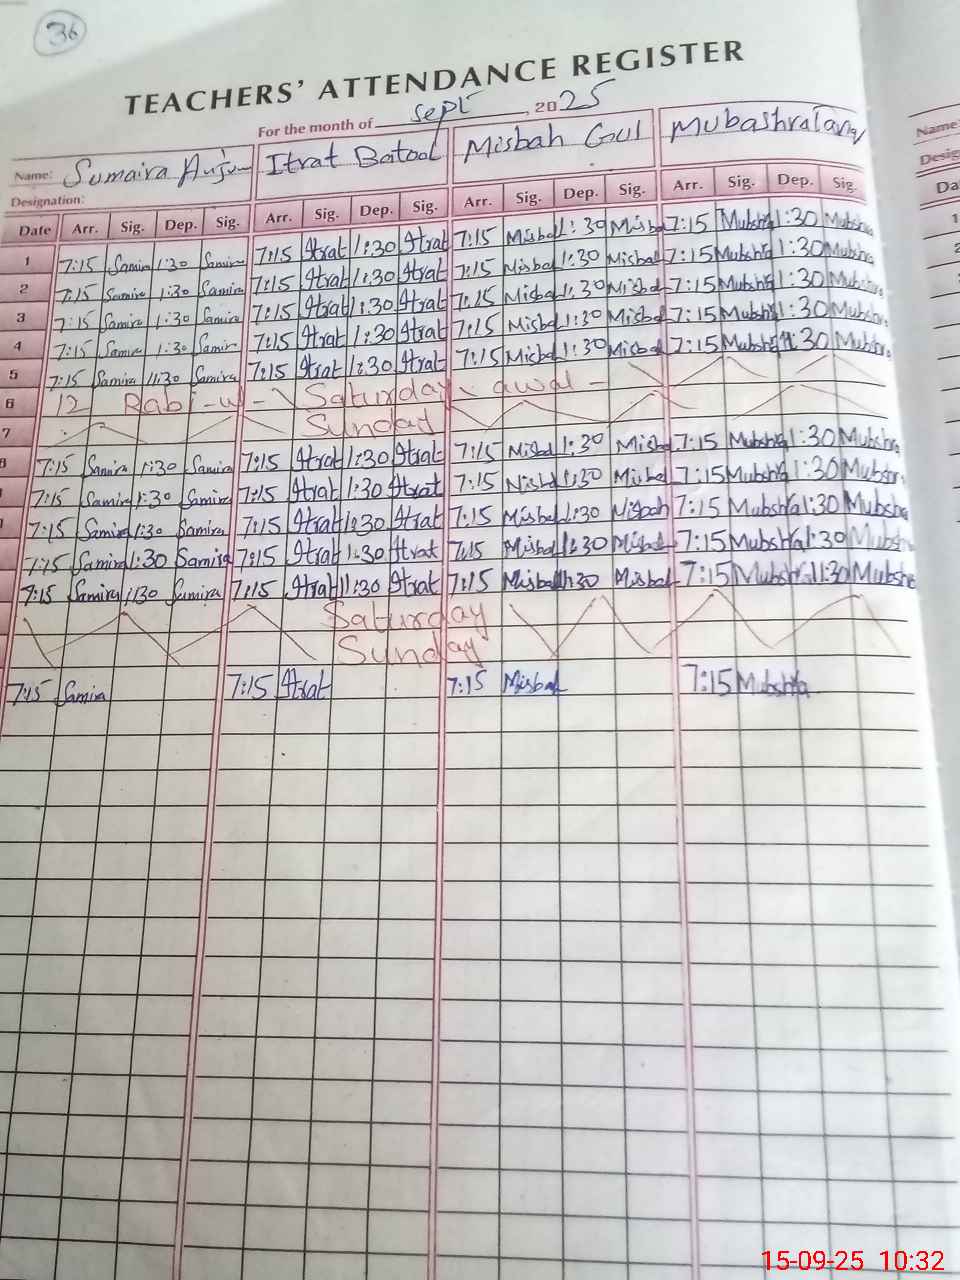 36
TEACHERS' ATTENDANCE REGISTER
For the month of Sept, 2025
Name: Sumaira Anjum Itrat Batool Misbah Goul Mubashra Tariq
Designation:
Date Arr. Sig. Dep. Sig. Arr. Sig. Dep. Sig. Arr. Sig. Dep. Sig. Arr. Sig. Dep. Sig.
1 7:15 Samira 1:30 Samira 7:15 Itrat 1:30 Itrat 7:15 Misbah 1:30 Misbah 7:15 Mubshra 1:30 Mubshra
2 7:15 Samira 1:30 Samira 7:15 Itrat 1:30 Itrat 7:15 Misbah 1:30 Misbah 7:15 Mubshra 1:30 Mubshra
3 7:15 Samira 1:30 Samira 7:15 Itrat 1:30 Itrat 7:15 Misbah 1:30 Misbah 7:15 Mubshra 1:30 Mubshra
4 7:15 Samira 1:30 Samira 7:15 Itrat 1:30 Itrat 7:15 Misbah 1:30 Misbah 7:15 Mubshra 1:30 Mubshra
5 7:15 Samira 1:30 Samira 7:15 Itrat 1:30 Itrat 7:15 Misbah 1:30 Misbah 7:15 Mubshra 1:30 Mubshra
6 12 Rabi-ul- Saturday awal-
7 Sunday
8 7:15 Samira 1:30 Samira 7:15 Itrat 1:30 Itrat 7:15 Misbah 1:30 Misbah 7:15 Mubshra 1:30 Mubshra
7:15 Samira 1:30 Samira 7:15 Itrat 1:30 Itrat 7:15 Misbah 1:30 Misbah 7:15 Mubshra 1:30 Mubshra
7:15 Samira 1:30 Samira 7:15 Itrat 1:30 Itrat 7:15 Misbah 1:30 Misbah 7:15 Mubshra 1:30 Mubshra
7:15 Samira 1:30 Samira 7:15 Itrat 1:30 Itrat 7:15 Misbah 1:30 Misbah 7:15 Mubshra 1:30 Mubshra
7:15 Samira 1:30 Samira 7:15 Itrat 11:30 Itrat 7:15 Misbah 11:30 Misbah 7:15 Mubshra 11:30 Mubshra
Saturday
Sunday
7:15 Samira 7:15 Itrat 7:15 Misbah 7:15 Mubshra
Name:
15-09-25 10:32